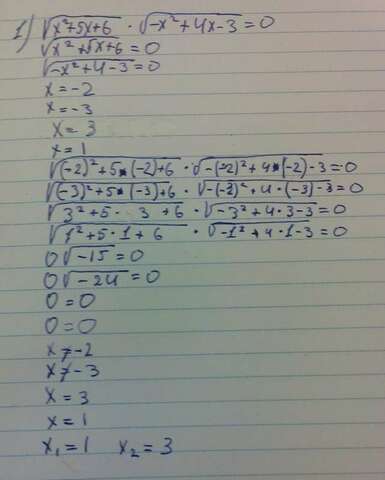 1) √x²+5x+6 · √-x²+4x-3 = 0
√x²+5x+6 = 0
√-x²+4-3 = 0
x = -2
x = -3
x = 3
x = 1
√(-2)²+5·(-2)+6 · √-(-2)²+4·(-2)-3 = 0
√(-3)²+5·(-3)+6 · √-(-3)²+4·(-3)-3 = 0
√3²+5·3+6 · √-3²+4·3-3 = 0
√1²+5·1+6 · √-1²+4·1-3 = 0
0√-15 = 0
0√-24 = 0
0 = 0
0 = 0
x ≠ -2
x ≠ -3
x = 3
x = 1
x₁ = 1 x₂ = 3